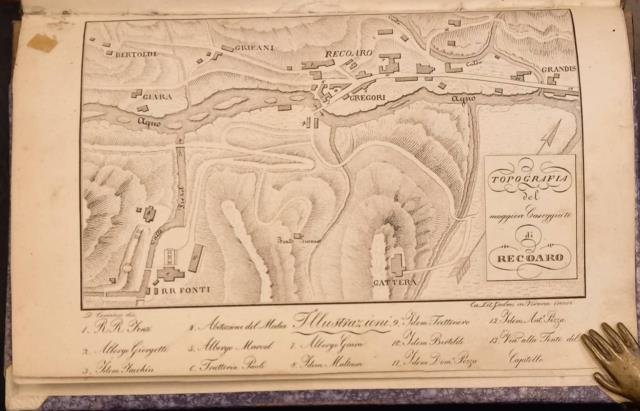 BERTOLDI
GRIFANI
RECOARO
GRANDIS
GIARA
GREGORI
Agno
Agno
TOPOGRAFIA
del
maggiore Caseggiato
di
RECOARO
GATTERA
RR FONTI
in Verona
Illustrazioni
1. R. R. Fonti
2. Albergo Giorgetti
3. Idem
4. Abitazione del Medico
5. Albergo
6. Trattoria Paoli
7. Albergo Giara
8. Idem
9. Idem Trettenero
10. Idem Bertoldi
11. Idem Dom. Pozza
12. Idem Ant. Pozza
13. Via alla Fonte del
Capitello